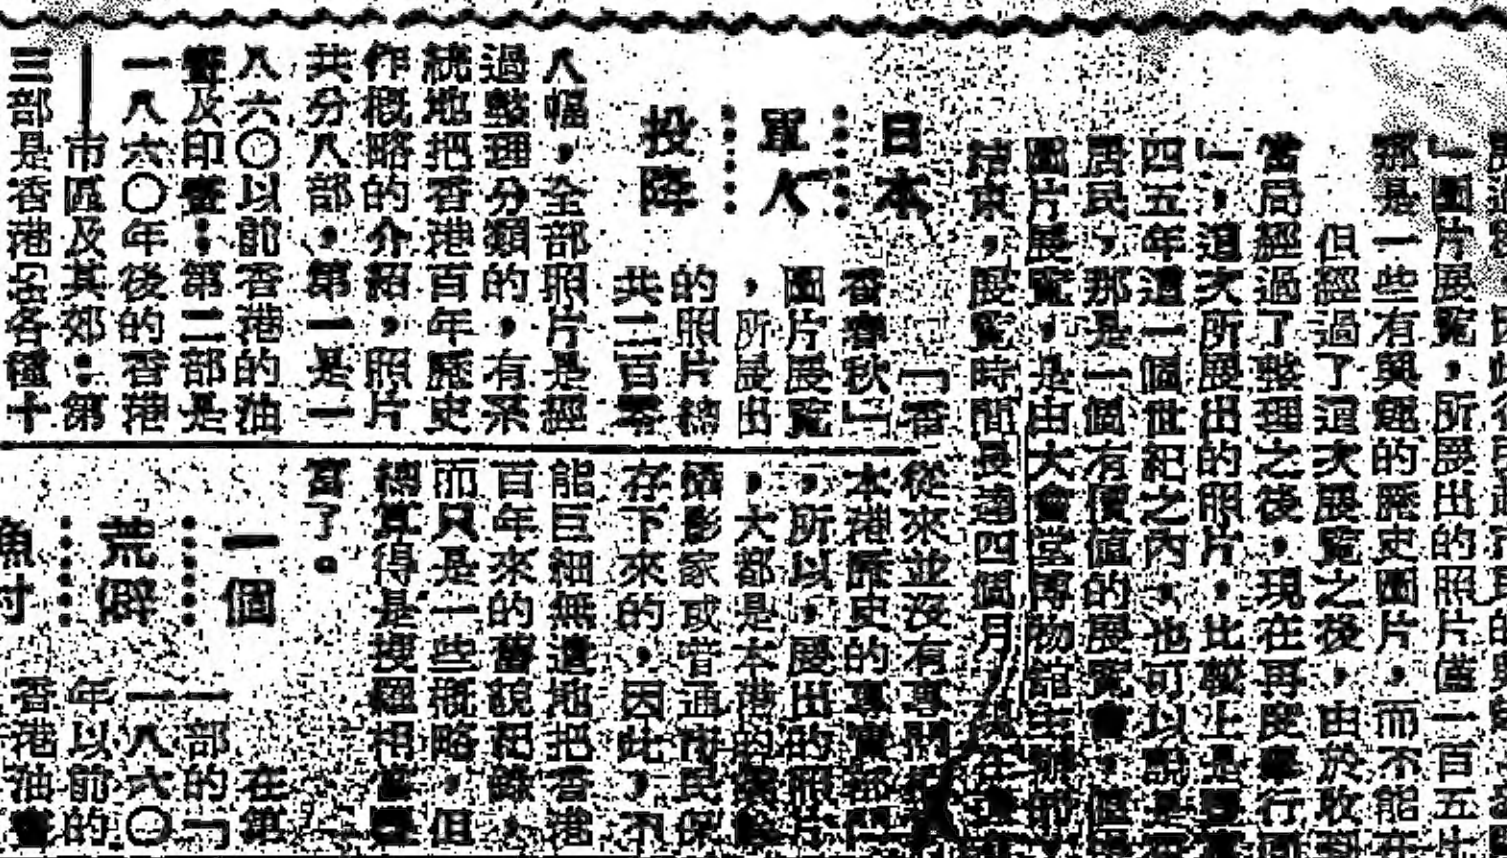 」圖片展覽，所展出的照片僅一百五十
那是一些有興趣的歷史圖片，而不能在
但經過了這次展覽之後，由於收到
當局經過了整理之後，現在再度舉行
」，這次所展出的照片，比較上是
四五年這一個世紀之內，也可以說是
居民，那是一個有價值的展覽會，值
圖片展覽，是由大會堂博物館主辦
結束，展覽時間長達四個月，
日本
軍人
投降
「香
香春秋」
圖片展覽
，所展出
的照片總
共二百零
八幅，全部照片是經
過整理分類的，有系
統地把香港百年歷史
作概略的介紹，照片
共分八部，第一是一
八六〇以前香港的油
畫及印畫；第二部是
一八六〇年後的香港
——市區及其郊；第
三部是香港的各種十
從來並沒有專門
本港歷史的專責部門
，所以，展出的照片
，大都是本港的
攝影家或普通市民保
存下來的，因此，不
能巨細無遺地把香港
百年來的舊貌紀錄，
而只是一些概略，但
總算得是搜羅相當豐
富了。
一個
荒僻
漁村
在第
一部的「
一八六〇
年以前的
香港油畫